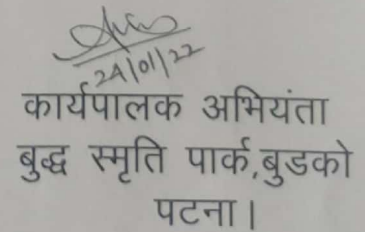 24/01/22
कार्यपालक अभियंता
बुद्ध स्मृति पार्क,बुडको
पटना।